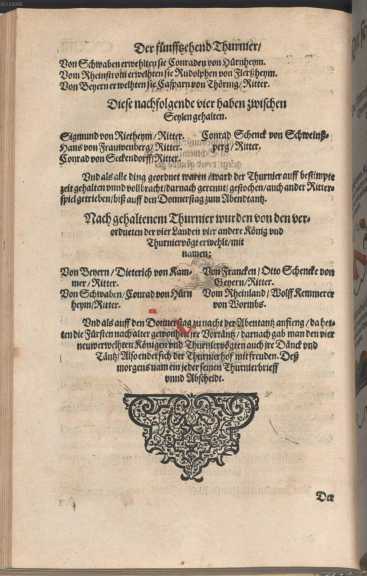 Der fünfftzehend Thurnier/
Von Schwaben erwehlten sie Conraden von Hürnheym.
Vom Rheinstrom erwelhten sie Rudolphen von Flerßheym.
Von Beyern erwelhten sie Casparn von Thörnig/Ritter.
Diese nachfolgende vier haben zwischen
Seylen gehalten.
Sigmund von Rietheym/Ritter.
Hans von Frauwenberg/Ritter.
Conrad von Seckendorff/Ritter.
Conrad Schenck von Schweinß-
perg/Ritter.
Und als alle ding geordnet waren/ward der Thurnier auff bestimpte
zeit gehalten unnd vollbracht/darnach gerennt/gestochen/auch ander Ritter-
spiel getrieben/biß auff den Donnerstag zum Abendtantz.
Nach gehaltenem Thurnier wurden von den ver-
ordneten der vier Landen vier andere König und
Thurniervögt erwehlt/mit
namen:
Von Beyern/Dieterich von Kam-
mer/Ritter.
Von Schwaben/Conrad von Hürn
heym/Ritter.
Von Francken/Otto Schencke von
Geyern/Ritter.
Vom Rheinland/Wolff Kemmerer
von Wormbs.
Und als auff den Donnerstag zu nacht der Abentantz anfieng/da het-
ten die Fürsten nach alter gewonheit ire Vorräntz/darnach gab man den vier
neuwerwelhten Königen und Thurniervögten auch ire Dänck und
Täntz/Also endet sich der Thurnierhof mit freuden. Deß
morgens nam ein jeder seinen Thurnierbrieff
unnd Abscheidt.
Der